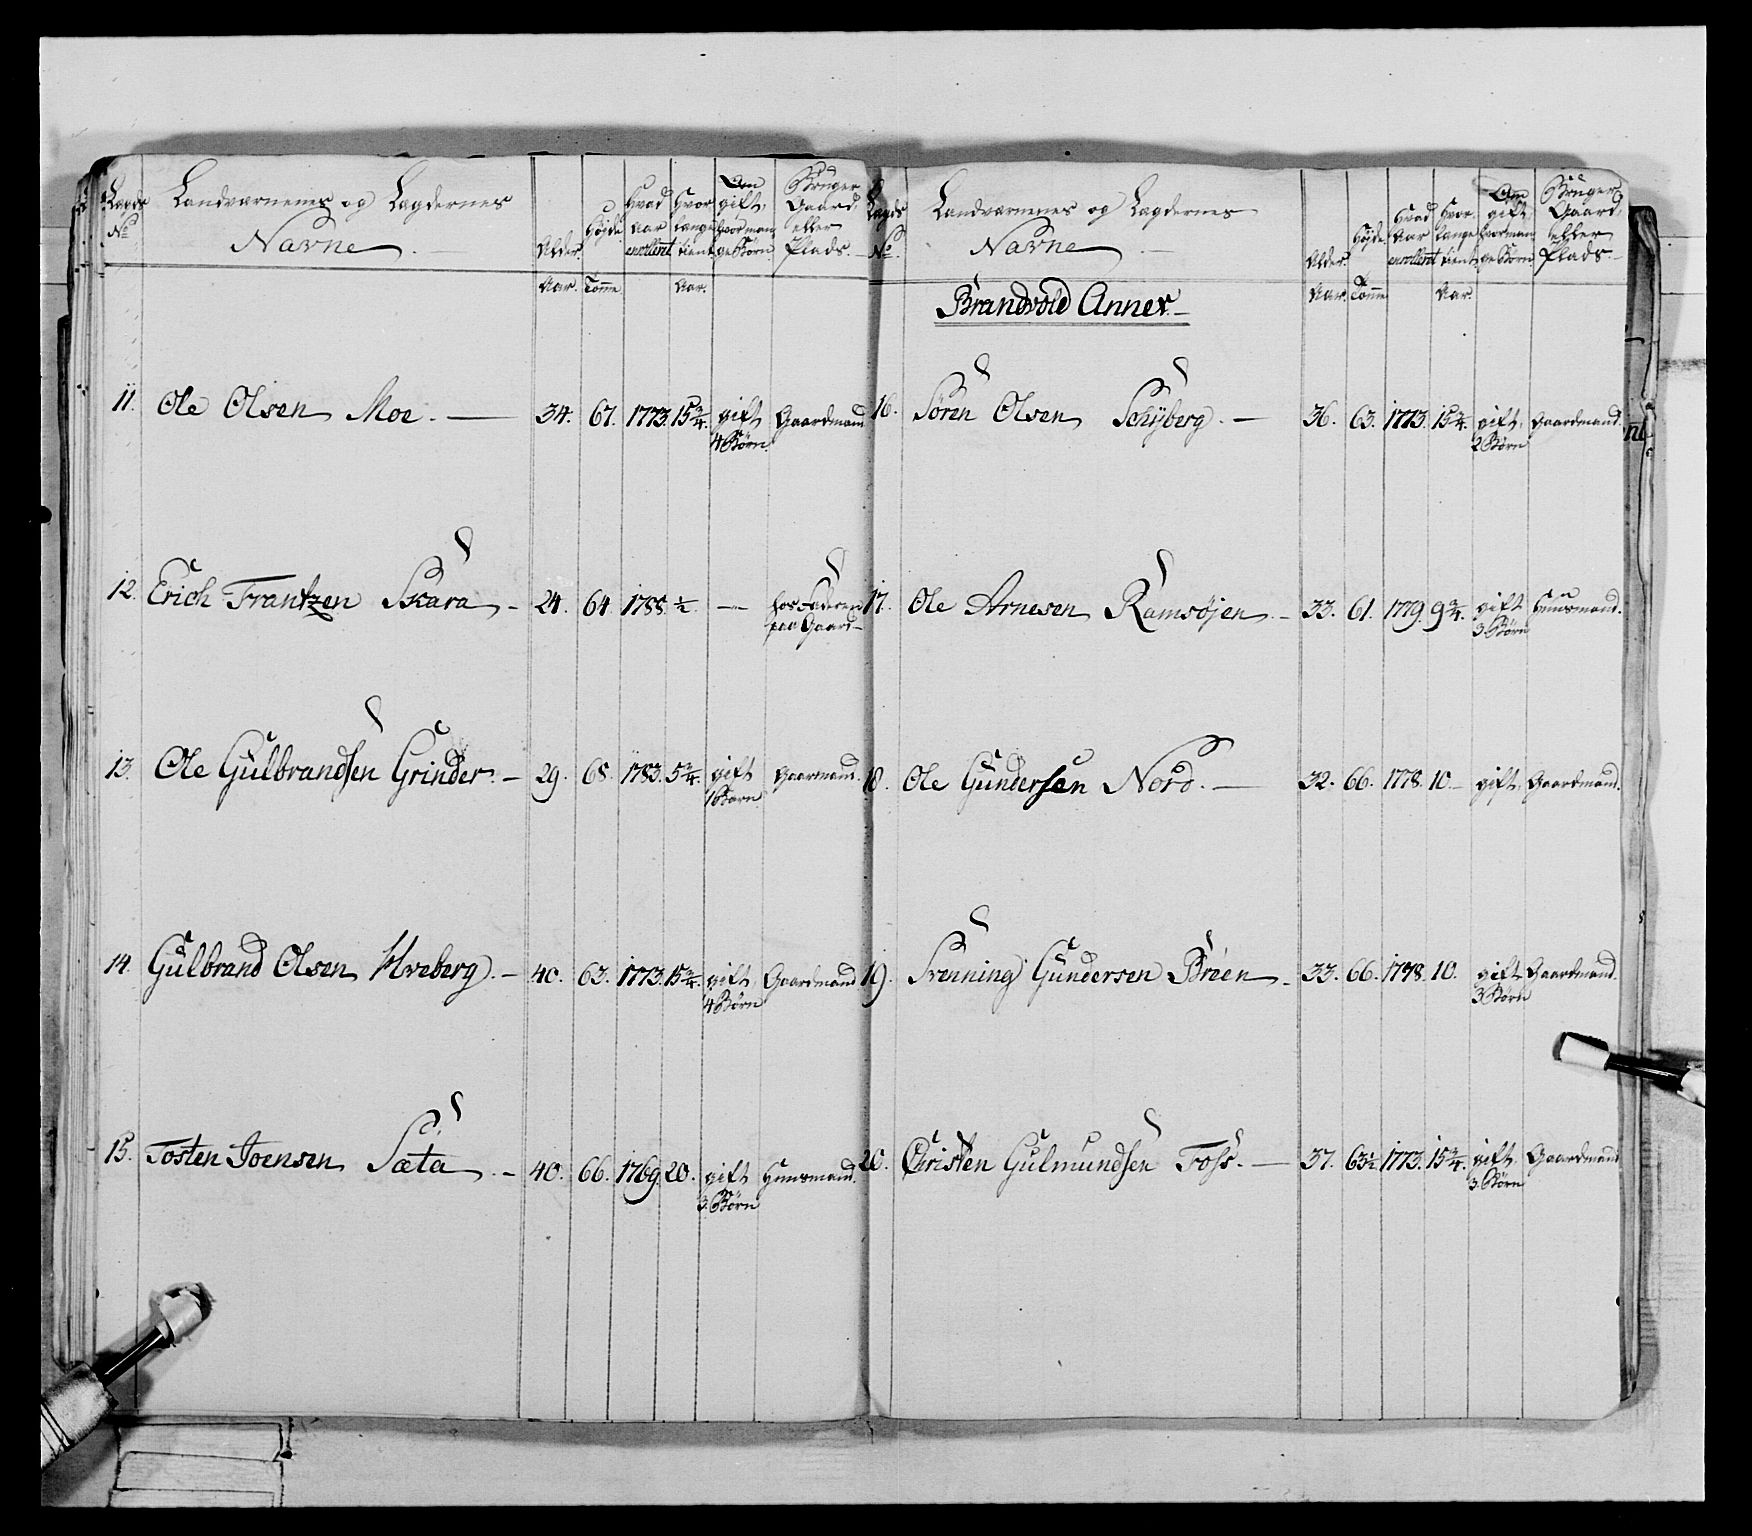 Lagds No
Landværnenes og Lagdernes Navne.
Alder. Aar.
Høyde Tomme
Hvad Aar enrollert
Hvor lange tient Aar.
Om gift, hvor mange Børn
Bruger Gaard, eller Plads.
11. Ole Olsen Moe. — 34. 67. 1773. 15 3/4. gift Gaardmand.
4 Børn.
12. Erich Frantzen Skara. — 24. 64. 1788. 1/2. — hos Faderen
paa Gaard —
13. Ole Gulbrandsen Grinder. — 29. 68. 1783. 5 3/4. gift Gaardmand.
1 Barn
14. Gulbrand Olsen Hveberg. — 40. 63. 1773. 15 3/4. gift, Gaardmand
4 Børn
15. Tosten Joensen Sæta. — 40. 66. 1769. 20. gift Huusmand.
3. Børn
Lagds No.
Landværnenes og Lagdernes Navne
Alder. Aar.
Høyde Tomme
Hvad Aar enrollert
Hvor lange tient Aar.
Om gift, hvor mange Børn.
Bruger Gaard, eller Plads. —
Brandvold Annex. —
16. Sören Olsen Schyberg. — 36. 63. 1773. 15 3/4. gift, Gaardmand.
2 Børn
17. Ole Arnesen Ramsøjen. — 33. 61. 1779. 9 3/4. gift Huusmand.
3. Børn
18. Ole Gundersen Nord. — 32. 66. 1778. 10. — gift, Gaardmand.
19. Svenning Gundersen Bröen. — 33. 66. 1778. 10. gift Gaardmand.
3 Børn
20. Christen Gulmundsen Foss. — 37. 63 1/2 1773. 15 3/4. gift, Gaardmand
3. Børn